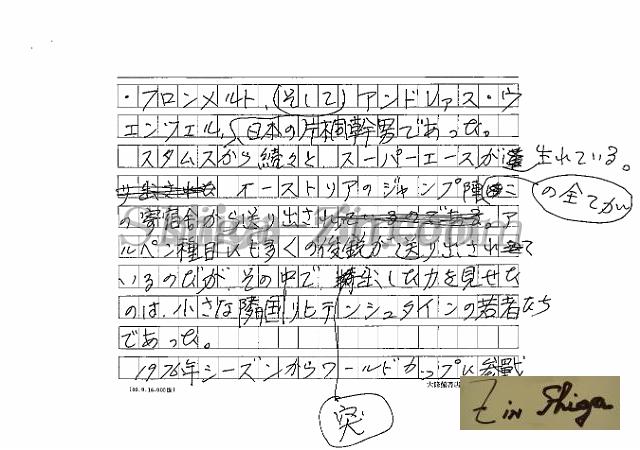 ・フロンメルト、(そして)アンドレアス・ヴ
ェンツェル、日本の片桐幹男であった。
スタムスから続々と スーパーエースが生れている。
オーストリアのジャンプ陣 の全てが、こ
の寄宿舎から送り出され 。ア
ルペン種目にも多くの俊鋭が送り出されて
いるのだが、その中で 突出した力を見せた
のは、小さな隣国リヒテンシュタインの若者たち
であった。
1976年シーズンからワールドカップに参戦
大修館書店
Z in Shiga
Shiga-Zin.com